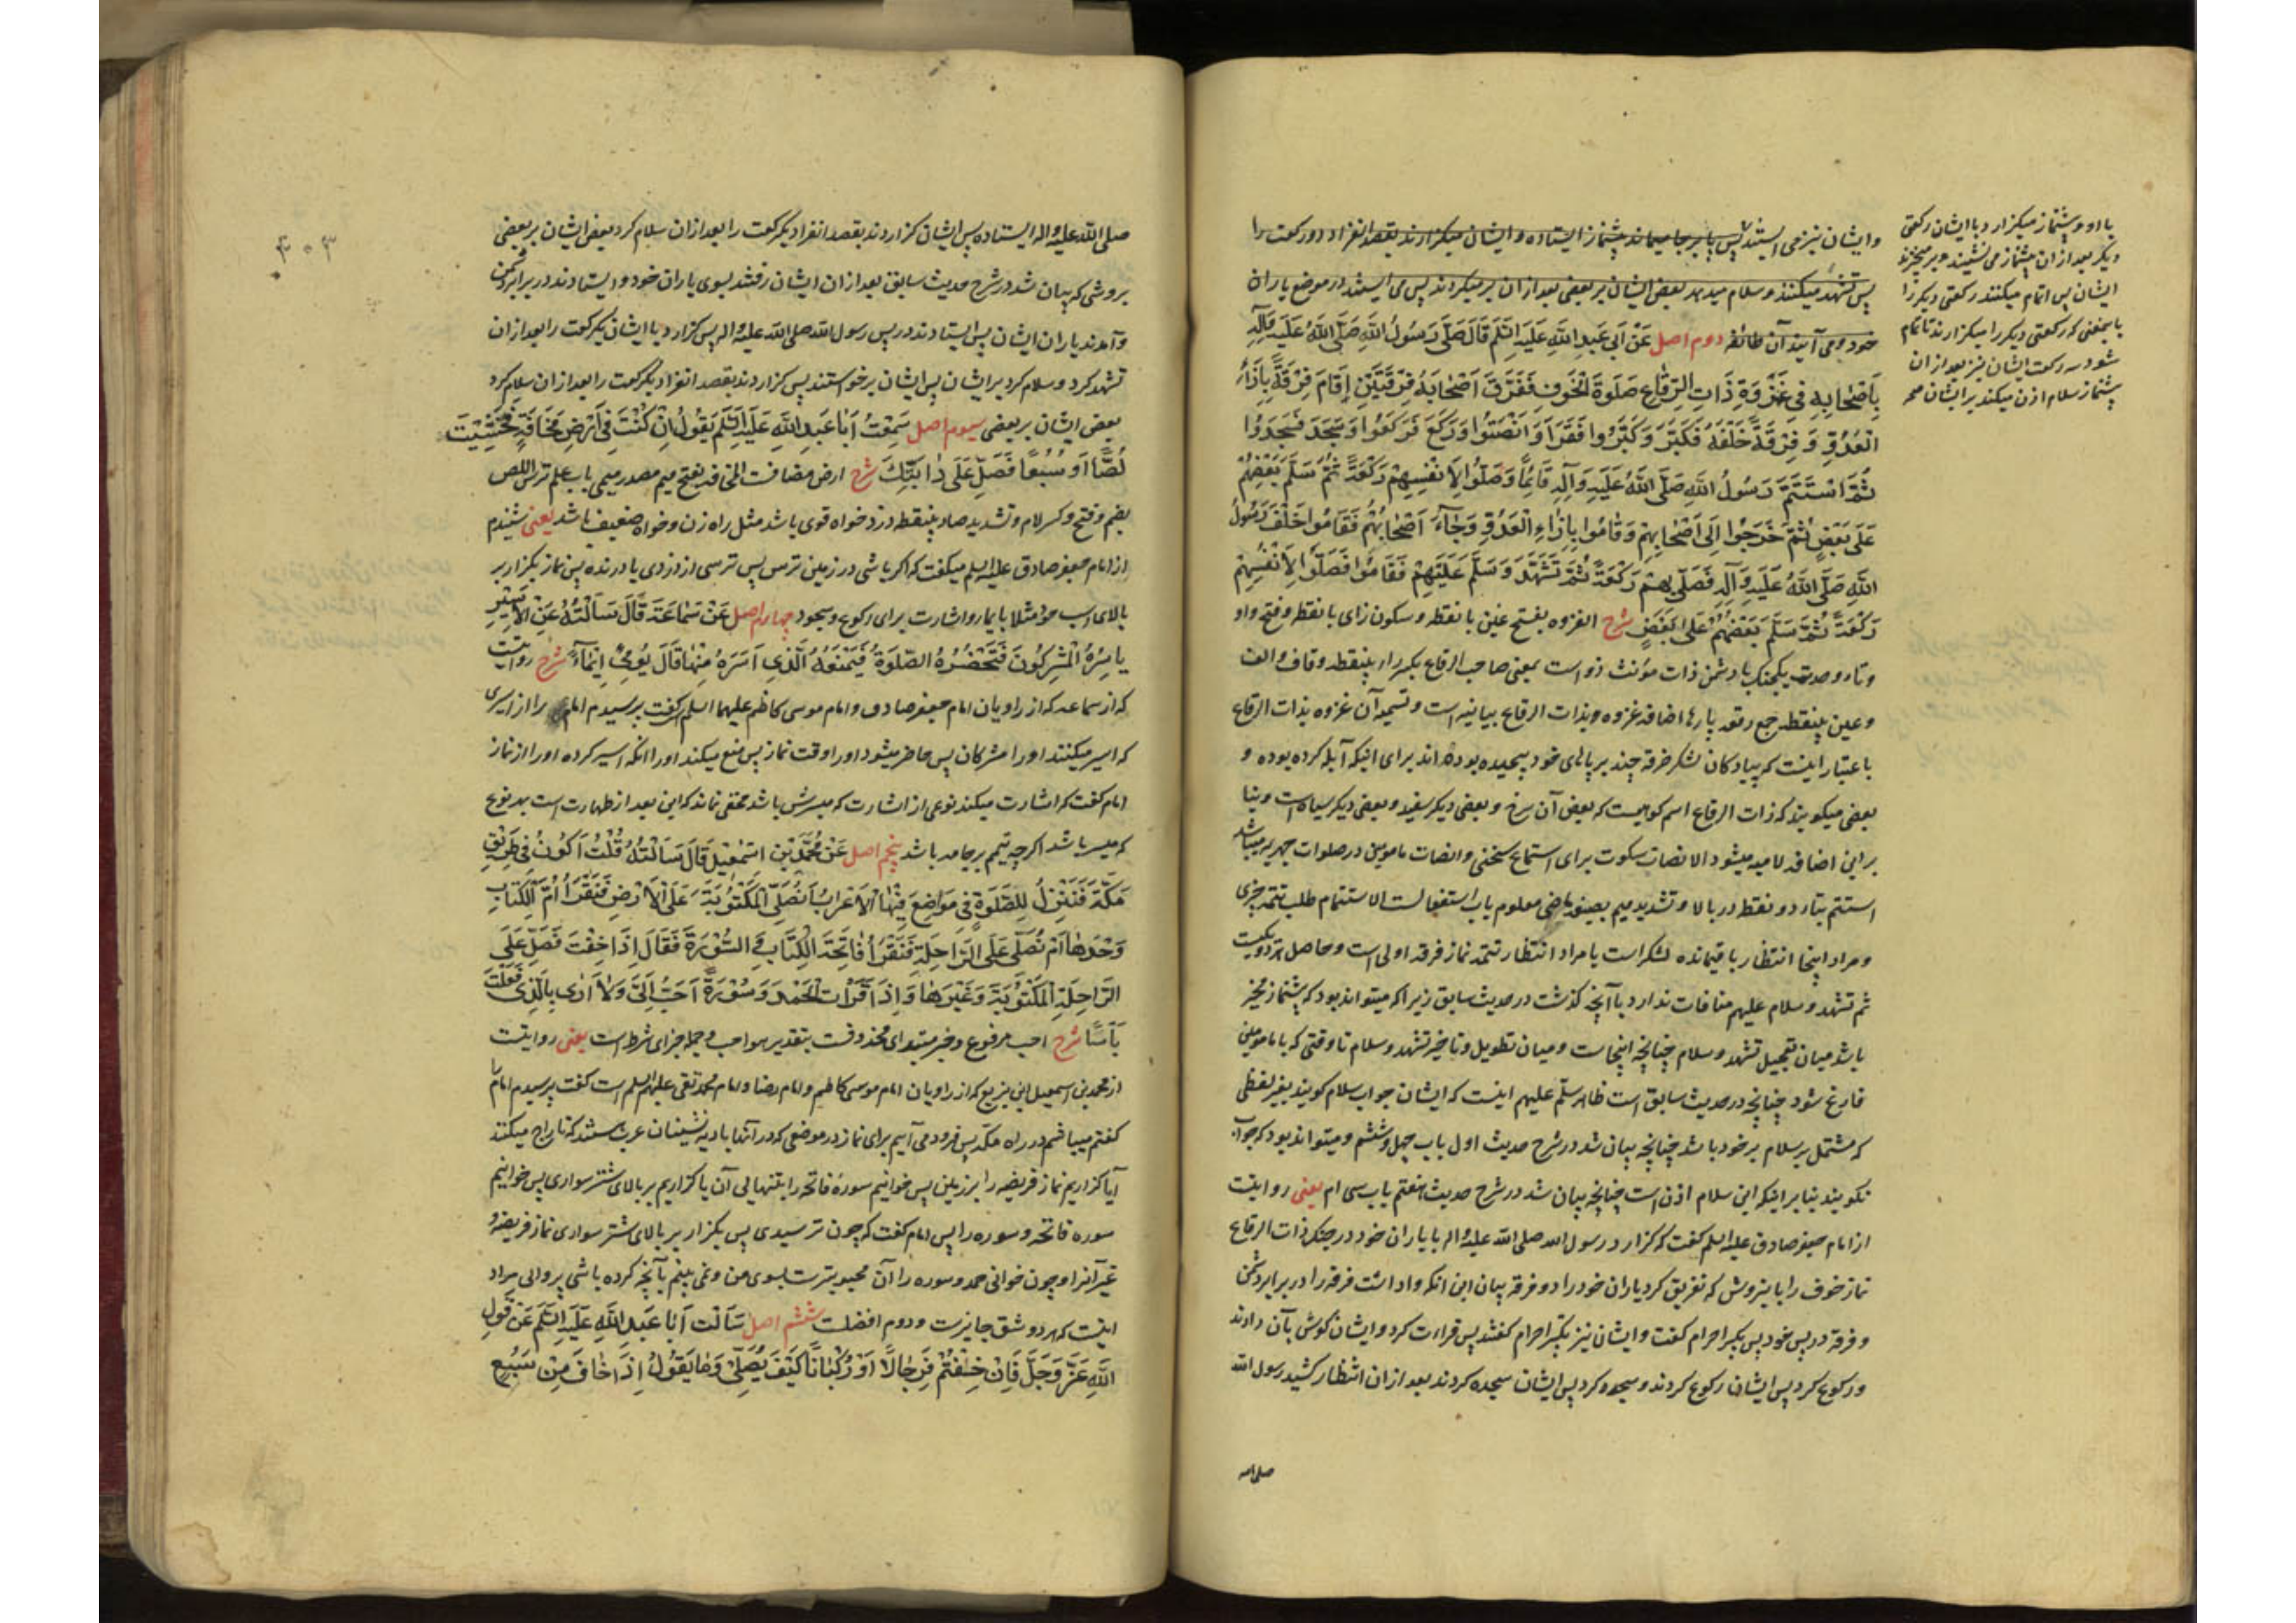 وایشان نیز می ایستند پس پابرجا میماند پیشنماز ایستاده و ایشان میگزارند بقصد انفراد دو رکعت را
پس تشهد میکنند و سلام میدهد بعض ایشان بر بعضی بعد ازان برمیگردند پس می ایستند در موضع یاران
خود و می آیند آن طائفه دوم اصل عَنْ اَبی عَبْدِ اللّٰهِ عَلَیْهِ السَّلَم قَالَ صَلَّی رَسُولُ اللّٰهِ صَلَّی اللّٰهُ عَلَیْهِ وَآلِهِ
بِاَصْحَابِهِ فی غَزْوَةِ ذَاتِ الرِّقَاعِ صَلٰوةَ الْخَوْفِ فَفَرَّقَ اَصْحَابَهُ فِرْقَتَیْنِ اِقَامَ فِرْقَةً بِاِزَاءِ
الْعَدُوِّ وَ فِرْقَةً خَلْفَهُ فَکَبَّرَ وَ کَبَّرُوا فَقَرَاَ وَ اَنْصَتُوا وَ رَکَعَ فَرَکَعُوا وَ سَجَدَ فَسَجَدُوا
ثُمَّ اسْتَتَمَّ رَسُولُ اللّٰهِ صَلَّی اللّٰهُ عَلَیْهِ وَآلِهِ قَائِمًا وَ صَلَّوْا لِاَنْفُسِهِمْ رَکْعَةً ثُمَّ سَلَّمَ بَعْضُهُمْ
عَلٰی بَعْضٍ ثُمَّ خَرَجُوا اِلٰی اَصْحَابِهِمْ وَ قَامُوا بِاِزَاءِ الْعَدُوِّ وَ جَاءَ اَصْحَابُهُمْ فَقَامُوا خَلْفَ رَسُولِ
اللّٰهِ صَلَّی اللّٰهُ عَلَیْهِ وَ آلِهِ فَصَلّٰی بِهِمْ رَکْعَةً ثُمَّ تَشَهَّدَ وَ سَلَّمَ عَلَیْهِمْ فَقَامُوا فَصَلَّوْا لِاَنْفُسِهِمْ
رَکْعَةً ثُمَّ سَلَّمَ بَعْضُهُمْ عَلٰی بَعْضٍ شرح الغزوه بفتح غین با نقطه و سکون زای با نقطه و فتح واو
وتاء وحدت یکجنک با دشمن ذات مؤنث ذو است بمعنی صاحب الرقاع بکسر راء بینقطه و قاف و الف
و عین بینقطه جمع رقعه پارها اضافه غزوه و بذات الرقاع بیانیه است و تسمیه آن غزوه بذات الرقاع
باعتبار اینست که پیادکان لشکر خرقه چند بر پاهای خود پیچیده بوده اند برای اینکه آبله کرده بوده و
بعضی میکویند که ذات الرقاع اسم کوهیست که بعض آن سرخ و بعضی دیکر سفید و بعضی دیکر سیاه است و بنا
بر این اضافه لامیه میشود الانصات سکوت برای استماع سخنی و انصات مامومین در صلوات جهریه میباشد
استتم بتاء دو نقطه در بالا و تشدید میم بصیغه ماضی معلوم باب استفعالست الاستتمام طلب تتمه چیزی
و مراد اینجا انتظار باقیمانده لشکر است یا مراد انتظار تتمه نماز فرقه اولی است و حاصل هر دو یکیست
ثم تشهد و سلم علیهم منافات ندارد با آنچه کذشت در حدیث سابق زیرا که میتواند بود که پیشنماز مخیر
باشد میان تعجیل تشهد و سلام چنانچه اینجاست و میان تطویل و تاخیر تشهد و سلام تا وقتی که با مامومین
فارغ شود چنانچه در حدیث سابق است ظاهر سلّم علیهم اینست که ایشان جواب سلام کویند بغیر لفظی
که مشتمل بر سلام بر خود باشد چنانچه بیان شد در شرح حدیث اول باب چهل و ششم و میتواند بود که جواب
نکویند بنا بر اینکه این سلام اذن است چنانچه بیان شد در شرح حدیث هفتم باب سی ام یعنی روایت
از امام جعفر صادق علیه السلم کفت که کزارد رسول الله صلی الله علیه واله با یاران خود در جنک ذات الرقاع
نماز خوف را باین روش که تفریق کرد یاران خود را دو فرقه بیان این انکه واداشت فرقه را در برابر دشمن
و فرقه در پس خود پس تکبیر احرام کفت و ایشان نیز تکبیر احرام کفتند پس قراءت کرد و ایشان کوش بآن دادند
و رکوع کرد پس ایشان رکوع کردند و سجود کرد پس ایشان سجده کردند بعد ازان انتظار کشید رسول الله
صلی الله
با او و پیشنماز میکزارد با ایشان رکعتی
دیکر بعد ازان پیشنماز می نشیند و برمیخیزند
ایشان پس اتمام میکنند رکعتی دیکر را
بایمعنی که رکعتی دیکر را میکزارند تا تمام
شود سه رکعت ایشان نیز بعد ازان
پیشنماز سلام اذن میکند بر ایشان
۳۰۴
صلی الله علیه واله ایستاده پس ایشان کزاردند بقصد انفراد یکرکعت را بعد ازان سلام کرد بعض ایشان بر بعضی
بروشی که بیان شد در شرح حدیث سابق بعد ازان ایشان رفتند بسوی یاران خود و ایستادند در برابر دشمن
و آمدند یاران ایشان پس ایستادند در پس رسول الله صلی الله علیه واله پس کزارد با ایشان یکرکعت را بعد ازان
تشهد کرد و سلام کرد بر ایشان پس ایشان برخواستند پس کزاردند بقصد انفراد یکرکعت را بعد ازان سلام کرد
بعض ایشان بر بعضی سیوم اصل سَمِعْتُ اَبَا عَبْدِ اللّٰهِ عَلَیْهِ السَّلَم یَقُولُ اِنْ کُنْتَ فی اَرْضِ مَخَافَةٍ فَخَشِیْتَ
لُصًّا اَوْ سَبُعًا فَصَلِّ عَلٰی دَابَّتِکَ شرح ارض مضافست المخافه بفتح میم مصدر میمی باب علم ترس اللص
بضم و فتح و کسر لام و تشدید صاد بینقطه دزد خواه قوی باشد مثل راه زن و خواه ضعیف باشد یعنی شنیدم
از امام جعفر صادق علیه السلم میکفت که اکر باشی در زمین ترس پس ترسی از دزدی یا درنده پس نماز بکزار بر
بالای اسب خود مثلا بایماء و اشارت برای رکوع و سجود چهارم اصل عَنْ سَمَاعَةَ قَالَ سَاَلْتُهُ عَنِ الْاَسِیْرِ
یَاسِرُهُ الْمُشْرِکُونَ فَتَحْضُرُهُ الصَّلٰوةُ فَیَمْنَعُهُ الَّذی اَسَرَهُ مِنْهَا قَالَ یُوْمِیُ اِیْمَاءً شرح روایتست
که از سماعه که از راویان امام جعفر صادق و امام موسی کاظم علیهما السلم است کفت پرسیدم امام را از اسیری
که اسیر میکنند او را مشرکان پس حاضر میشود او را وقت نماز پس منع میکند او را انکه اسیر کرده او را از نماز
امام کفت که اشارت میکند نوعی از اشارت که میسرش باشد مخفی نماند که این بعد از طهارت است بهر نوع
که میسر باشد اکرچه تیمم بر جامه باشد پنجم اصل عَنْ مُحَمَّدِ بْنِ اِسْمٰعِیلَ قَالَ سَاَلْتُهُ قُلْتُ اَکُونُ فی طَرِیْقِ
مَکَّةَ فَنَنْزِلُ لِلصَّلٰوةِ فی مَوَاضِعَ فِیْهَا الْاَعْرَابُ اَنُصَلِّی الْمَکْتُوبَةَ عَلَی الْاَرْضِ فَنَقْرَأُ اُمَّ الْکِتَابِ
وَحْدَهَا اَمْ نُصَلّی عَلَی الرَّاحِلَةِ فَنَقْرَأُ فَاتِحَةَ الْکِتَابِ وَ السُّوْرَةَ فَقَالَ اِذَا خِفْتَ فَصَلِّ عَلَی
الرَّاحِلَةِ الْمَکْتُوبَةَ وَ غَیْرَهَا وَ اِذَا قَرَأْتَ الْحَمْدَ وَ سُوْرَةً اَحَبُّ اِلَیَّ وَ لَا اَرٰی بِالَّذی فَعَلْتَ
بَأْسًا شرح احب مرفوع و خبر مبتدای محذوفست بتقدیر هو احب و جمله جزای شرط است یعنی روایتست
از محمد بن اسمعیل ابن بزیع که از راویان امام موسی کاظم و امام رضا و امام محمد تقی علیهم السلم است کفت پرسیدم امام را
کفتم میباشم در راه مکه پس فرود می آییم برای نماز در موضعی که در آنها بادیه نشینان عرب هستند که تاراج میکنند
آیا کزاریم نماز فریضه را بر زمین پس خوانیم سورهٔ فاتحه را بتنهایی آن یا کزاریم بر بالای شتر سواری پس خوانیم
سوره فاتحه و سوره را پس امام کفت که چون ترسیدی پس بکزار بر بالای شتر سواری نماز فریضه و
غیر آنرا و چون خوانی حمد و سوره را آن محبوبترست بسوی من و نمی بینم بآنچه کرده باشی پروائی مراد
اینست که هر دو شق جایزست و دوم افضلست ششم اصل سَاَلْتُ اَبَا عَبْدِ اللّٰهِ عَلَیْهِ السَّلَم عَنْ قَوْلِ
اللّٰهِ عَزَّ وَ جَلَّ فَاِنْ خِفْتُمْ فَرِجَالًا اَوْ رُکْبَانًا کَیْفَ یُصَلِّی وَ مَا یَقُولُ اِذَا خَافَ مِنْ سَبُعٍ